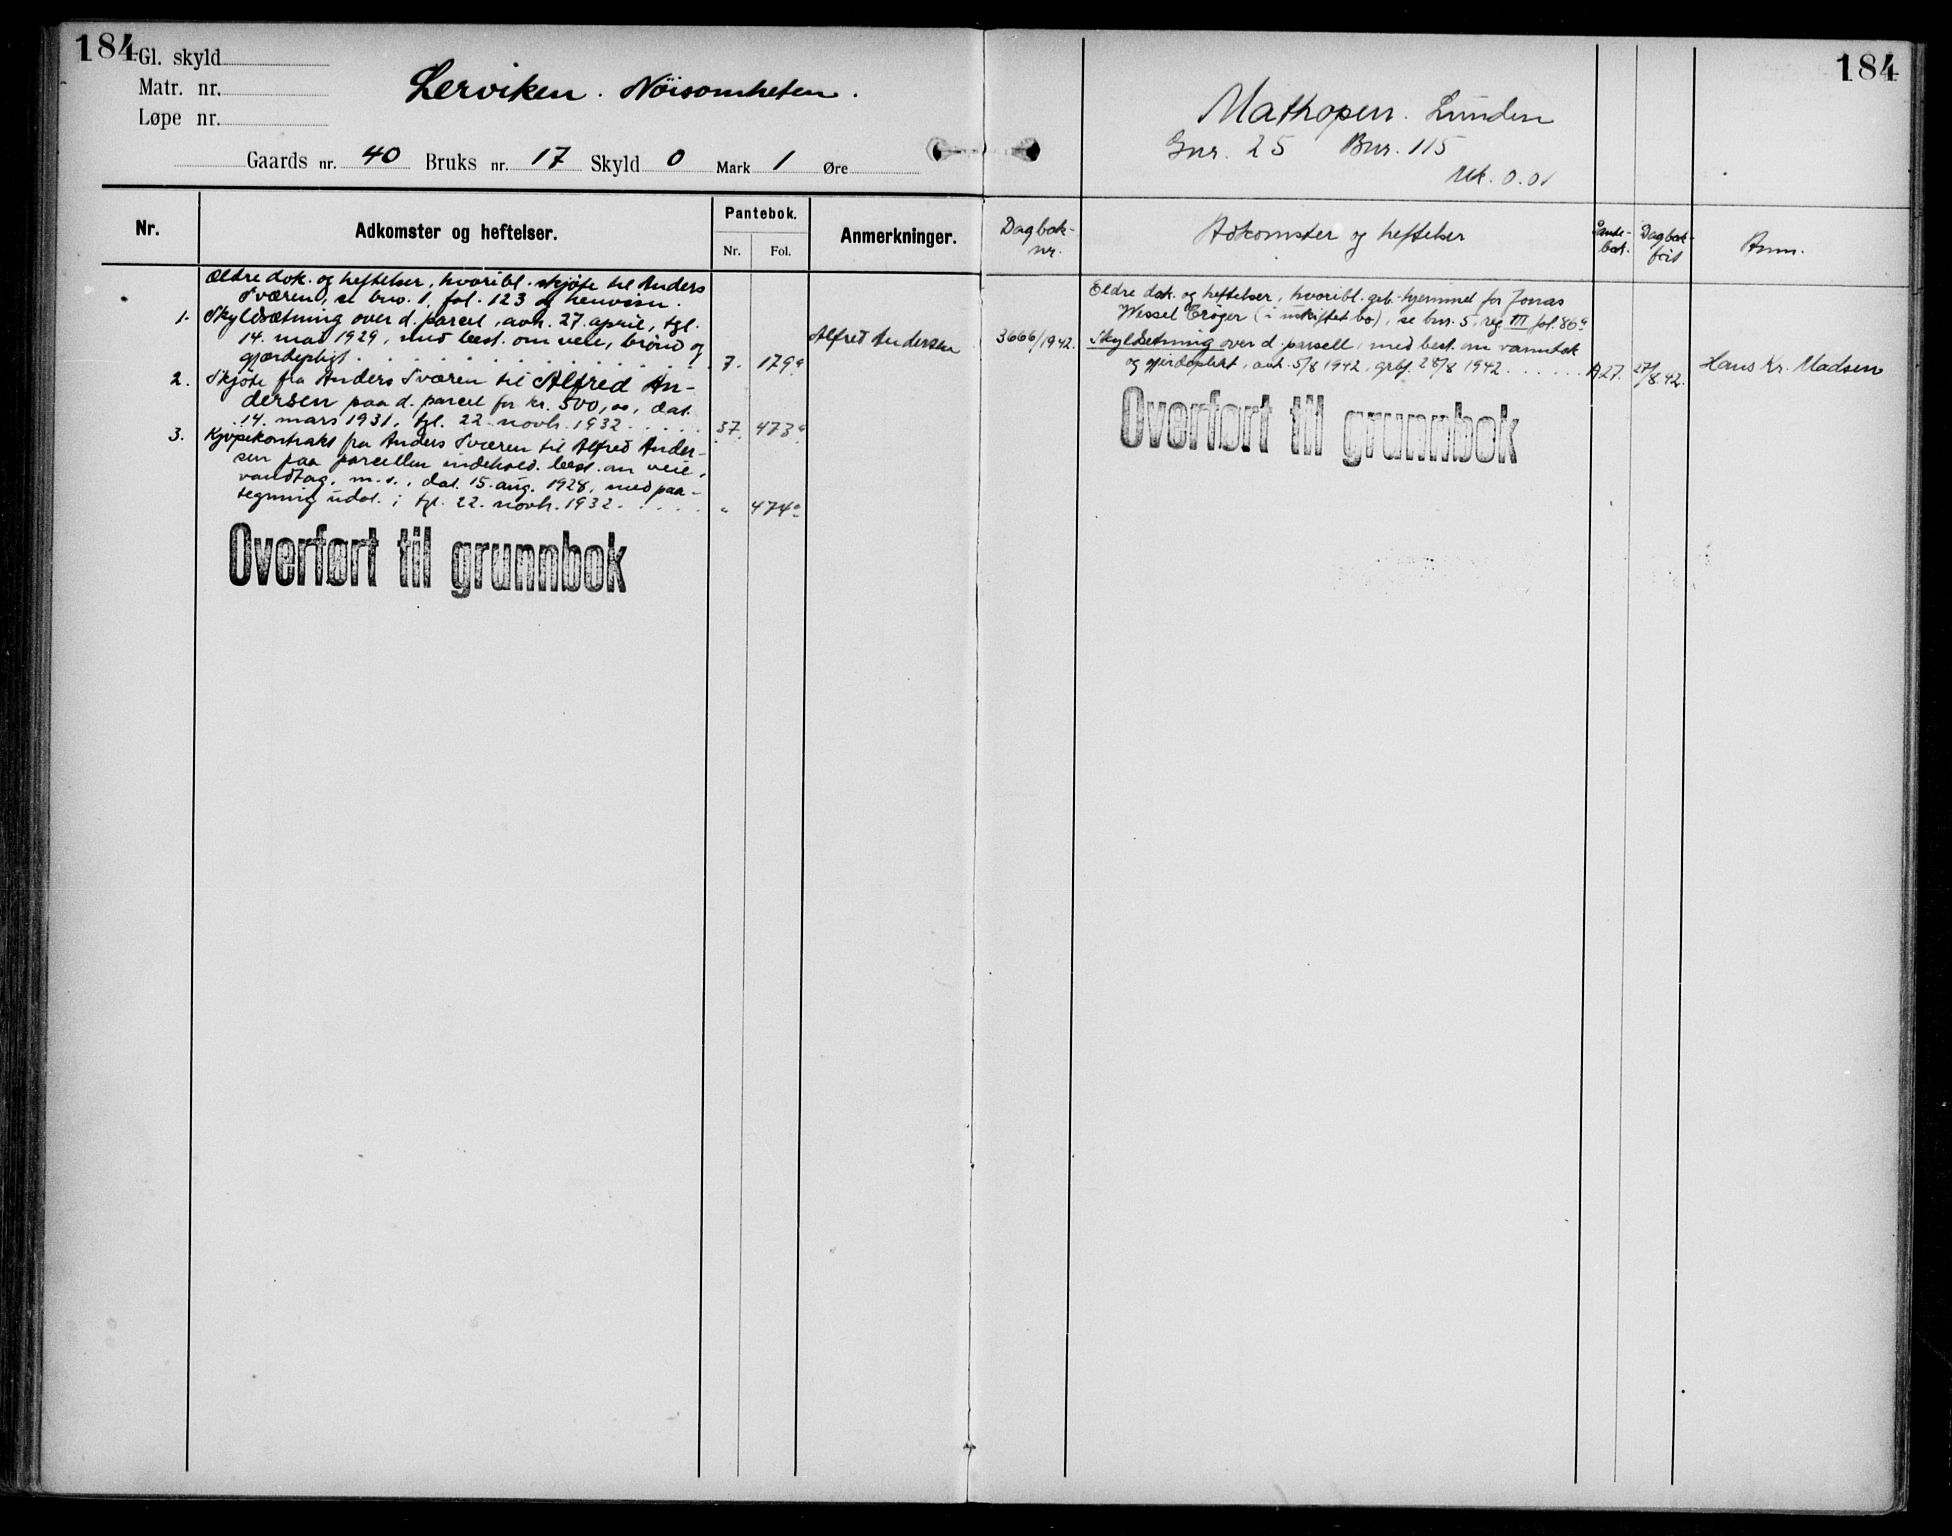 184
Gl. skyld
Matr. nr.
Løpe nr.
Lerviken. Nöisomheten.
Gaards nr. 40 Bruks nr. 17 Skyld 0 Mark 1 Øre
Nr.
Adkomster og heftelser.
Pantebok.
Nr. Fol.
Anmerkninger.
Ældre dok. og heftelser, hvoribl. skjöte til Anders
Sværen, se bno. 1, fol. 123 og henviser.
1. Skyldsætning over d. parcel, avh. 27. april, tgl.
14. mai 1929, med best. om veie, brönd og
gjærdepligt . . . . . . . . . . 7. 179a
Alfred Andersen
2. Skjöte fra Anders Sværen til Alfred An-
dersen paa d. parcel for kr. 500,00, dat.
14. mars 1931, tgl. 22. novbr. 1932 . . . . . 37. 473a
3. Kjöpekontrakt fra Anders Sværen til Alfred Ander-
sen paa parcellen indehold. best. om veie,
vandtag, m.v., dat. 15. aug. 1928, med paa-
tegning udat.; tgl. 22. novbr. 1932 . . . . . " 474a
Overført til grunnbok
184
Mathopen. Lunden
Gnr. 25 Bnr. 115
Mk. 0.01
Dagbok-
nr.
Adkomster og heftelser
Pante-
bok.
Dagbok-
ført
Anm.
Eldre dok. og heftelser, hvoribl. grb. hjemmel for Jonas
Wessel Tröger (i uskiftet bo), se bnr. 5, reg III fol. 86a
3666/1942. Skyldsetning over d. parsell, med best. om vanntak
og gjerdeplikt, avh. 5/8 1942, grbf. 28/8 1942 . . . . . . A27. 27/8.42. Hans Kr. Madsen
Overført til grunnbok